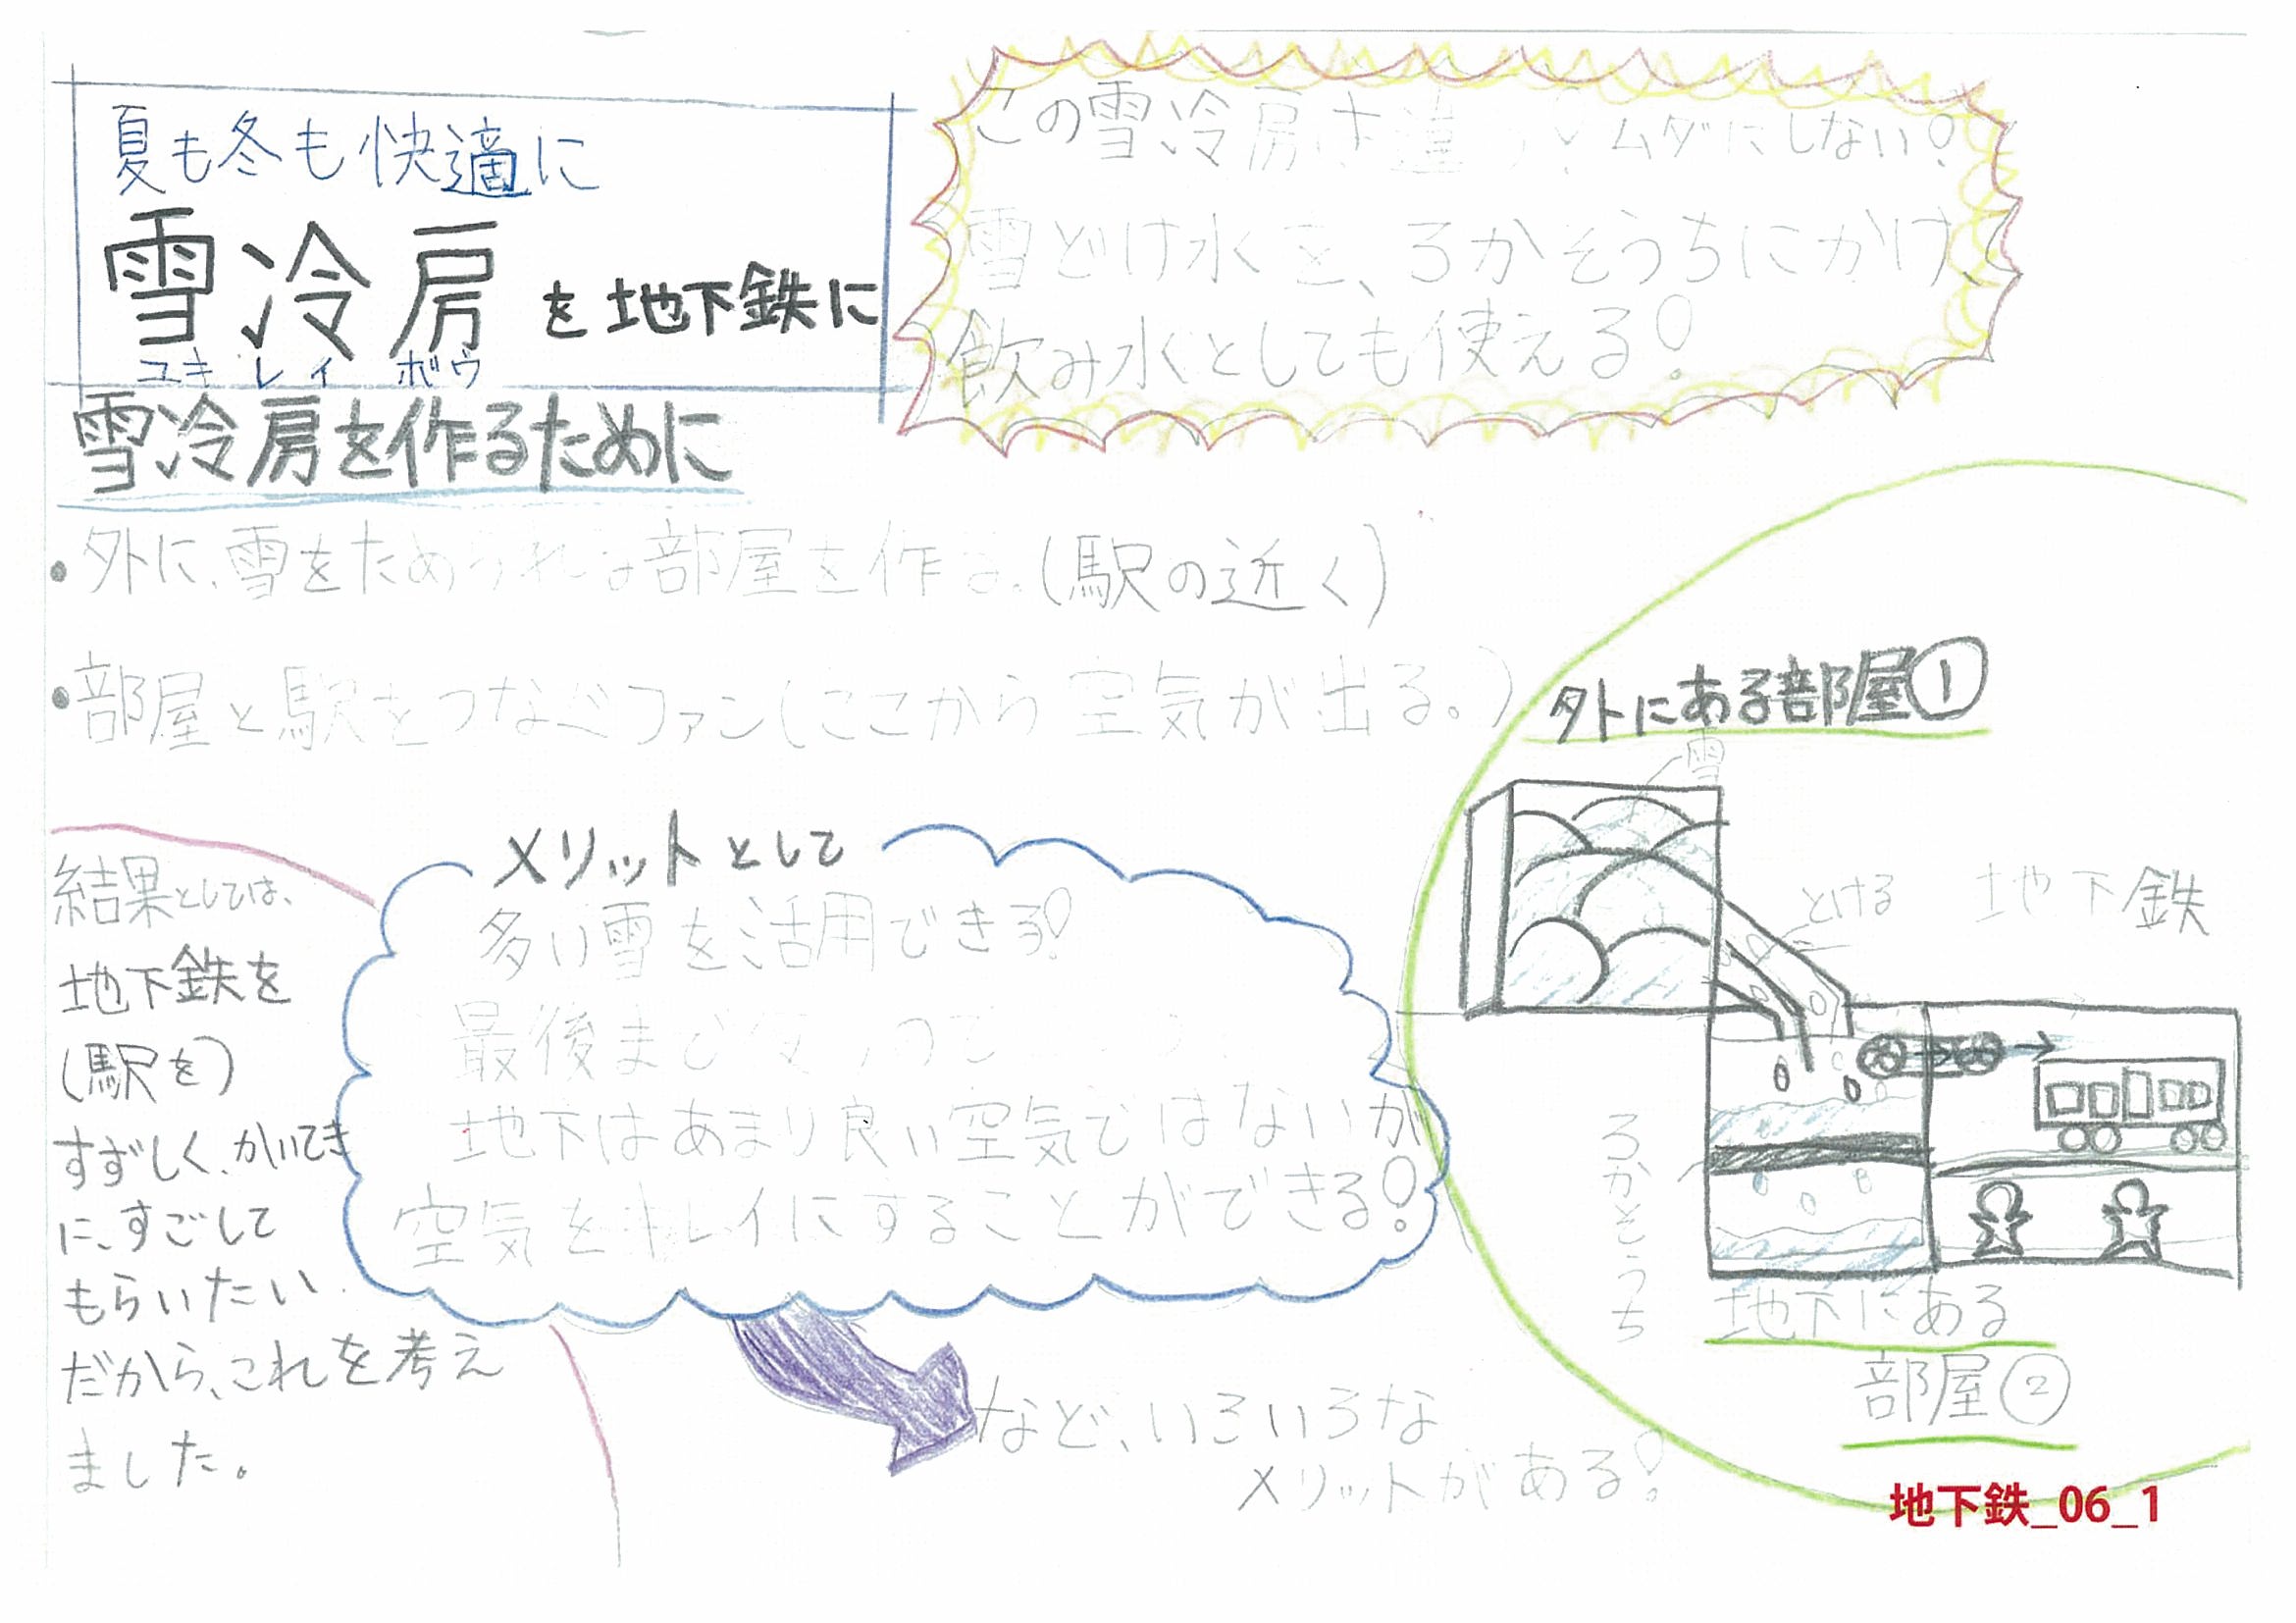 夏も冬も快適に
雪冷房を地下鉄に
ユキレイボウ
この雪冷房は違う!ムダにしない!
雪どけ水を、ろかそうちにかけ、
飲み水としても使える!
雪冷房を作るために
・外に、雪をためられる部屋を作る。(駅の近く)
・部屋と駅をつなぐファン(ここから空気が出る。)
外にある部屋①
雪
とける
地下鉄
ろかそうち
地下にある
部屋②
メリットとして
多い雪を活用できる!
最後まで
地下はあまり良い空気ではないが
空気をキレイにすることができる!
など、いろいろな
メリットがある!
結果としては、
地下鉄を
(駅を)
すずしく、かいてき
に、すごして
もらいたい
だから、これを考え
ました。
地下鉄_06_1